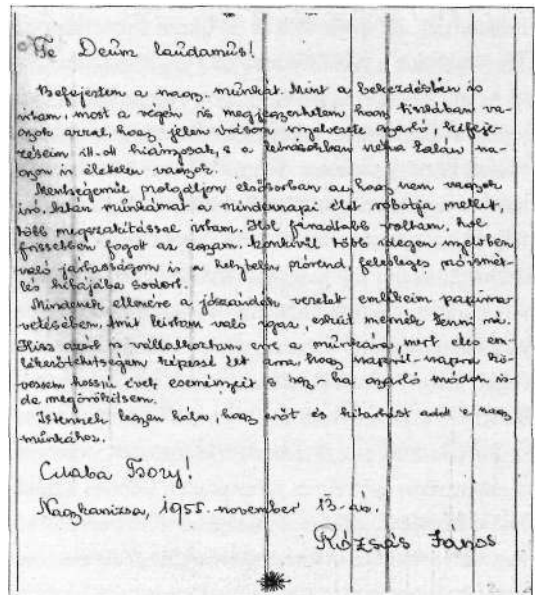 Te Deum laudamus!
Befejeztem a nagy munkát. Mint a bekezdésben is
írtam, most a végén is megjegyezhetem hogy tisztában va-
gyok azzal, hogy jelen írásom nyelvezete gyarló, kifeje-
zéseim itt-ott hiányosak, s a leírásokban néha talán na-
gyon is élettelen vagyok.
Mentségemül szolgáljon elsősorban az, hogy nem vagyok
író. Aztán munkámat a mindennapi élet robotja mellett,
több megszakítással írtam. Hol fáradtabb voltam, hol
frissebben fogott az agyam. Azonkívül több idegen nyelvben
való jártasságom is a helytelen szórend, felesleges szóismét-
lés hibájába sodort.
Mindenek ellenére a jószándék vezetett emlékeim papírra
vetésében. Amit leírtam való igaz, esküt mernék tenni rá.
Hisz azért is vállalkoztam erre a munkára, mert éles em-
lékezőtehetségem képessé tett arra, hogy napról-napra kö-
vessem hosszú évek eseményeit s így - ha gyarló módon is-
de megörökítsem.
Istennek legyen hála, hogy erőt és kitartást adott e nagy
munkához.
Csaba
Nagykanizsa, 1955. november 13-án.
Rózsás János